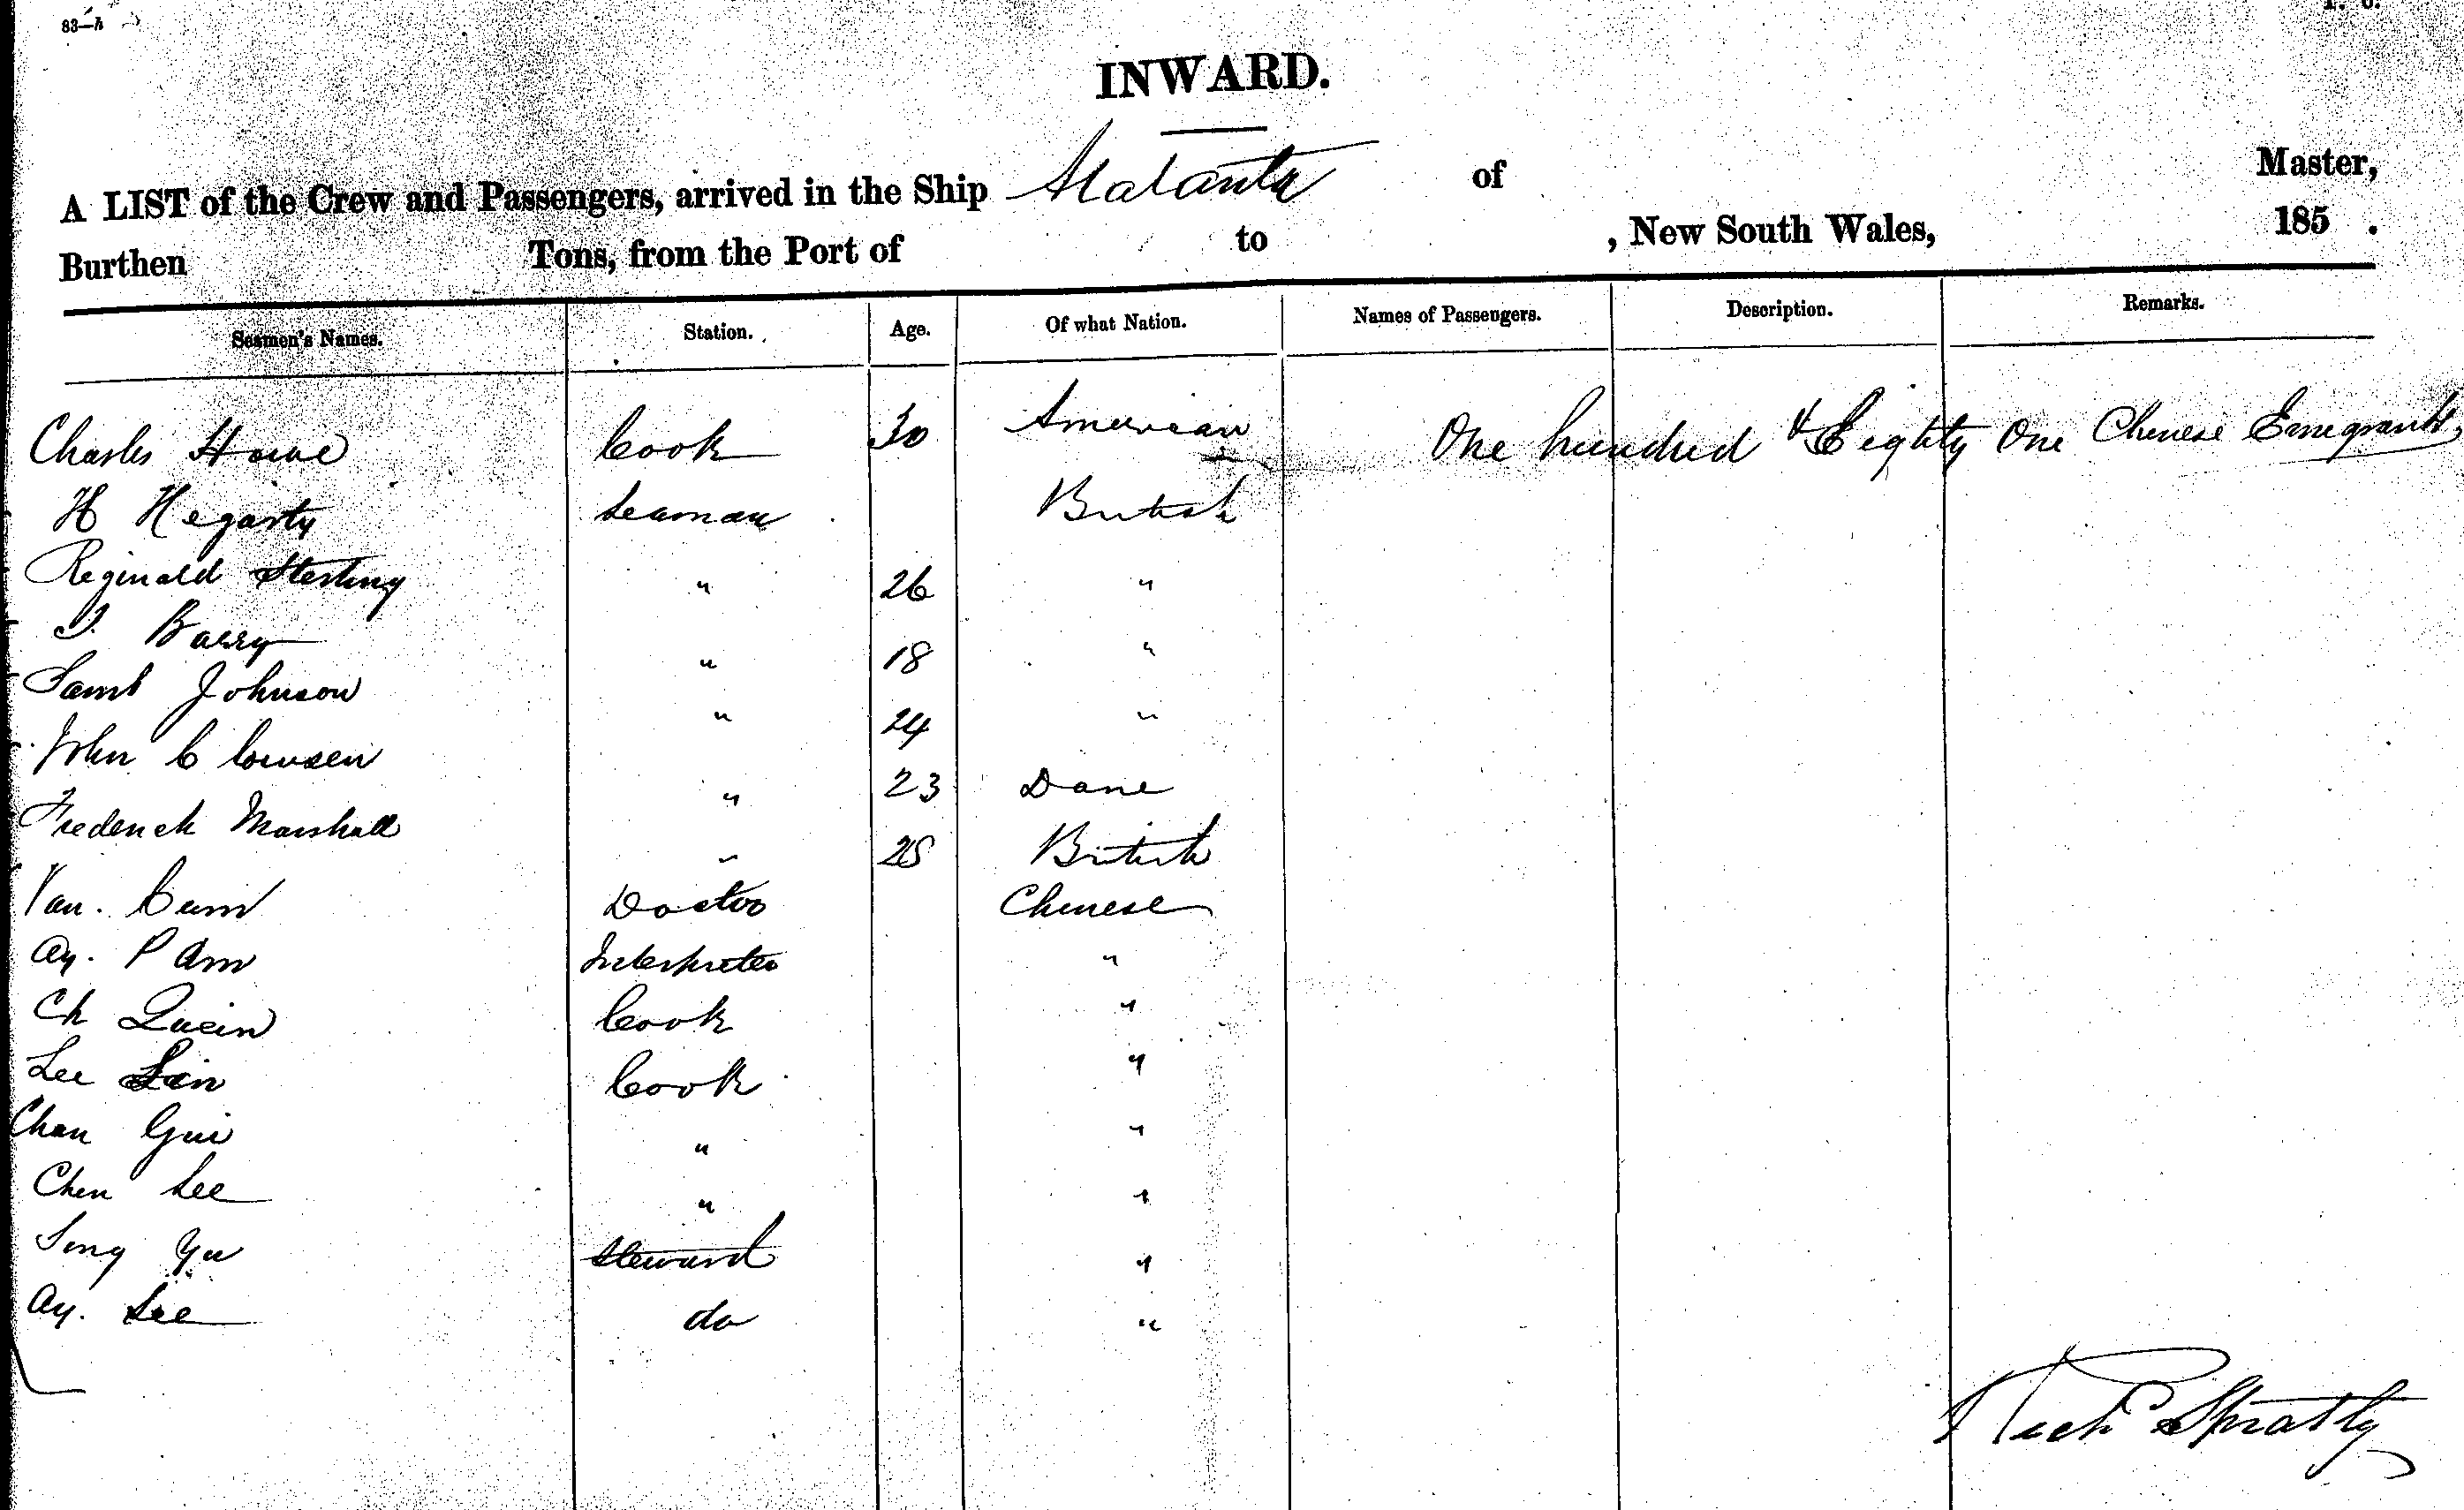 83—h
INWARD.
A LIST of the Crew and Passengers, arrived in the Ship Atalanta of Master,
Burthen Tons, from the Port of to , New South Wales, 185 .
Seamen's Names. Station. Age. Of what Nation. Names of Passengers. Description. Remarks.
Charles Howe Cook 30 American One hundred & Eighty One Chinese Emigrants
H Hegarty Seaman British
Reginald Sterling " 26 "
Barry " 18 "
Saml Johnson " 24 "
John C " 23 Dane
Frederick Marshall " 25 British
Yan. Cum Doctor Chinese
Ay. P Am Interpreter "
Ch Quein Cook "
Lee Lin Cook "
Chan Gui " "
Chen Lee " "
Song Yu Steward "
Ay. Lee do "
Richd Spratly